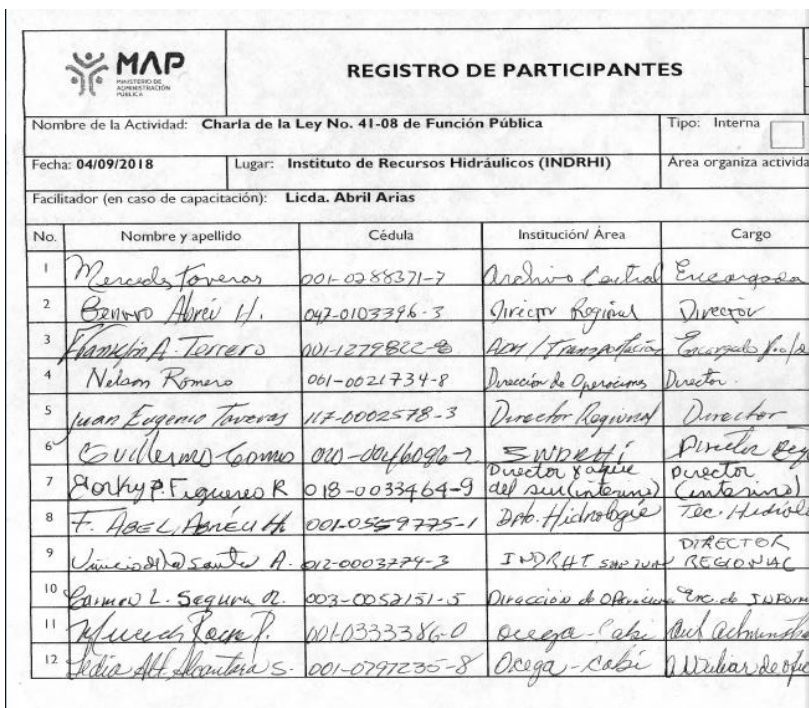 MAP
MINISTERIO DE
ADMINISTRACIÓN
PÚBLICA
REGISTRO DE PARTICIPANTES
Nombre de la Actividad: Charla de la Ley No. 41-08 de Función Pública Tipo: Interna
Fecha: 04/09/2018 Lugar: Instituto de Recursos Hidráulicos (INDRHI) Área organiza activida
Facilitador (en caso de capacitación): Licda. Abril Arias
No. Nombre y apellido Cédula Institución/ Área Cargo
1 Mercedes Taveras 001-0288371-7 Archivo Central Encargada
2 Abréu H. 047-0103396-3 Director Regional Director
3 Franklin A. Terrero 001-1279822-8 ADM/Transportación Encargado
4 Nelson Romero 001-0021734-8 Dirección de Operaciones Director.
5 Juan Eugenio Taveras 117-0002578-3 Director Regional Director
6 Guillermo Gomes INDRHI Director Reg
7 P. Figuereo R 018-0033464-9 Director Yaque del sur (interino) Director (interino)
8 F. ABEL ABRÉU H. 001-0559775-1 Dpto. Hidrología Tec. Hidról
9 A. 012-0003774-3 INDRHI SAN JUAN DIRECTOR REGIONAL
10 Carmen L. Segura M. 003-0052151-5 Dirección de Operaciones Enc. de Inform
11 001-0333386-0
12 Alcantara S. 001-0797235-8 Auxiliar de ofic